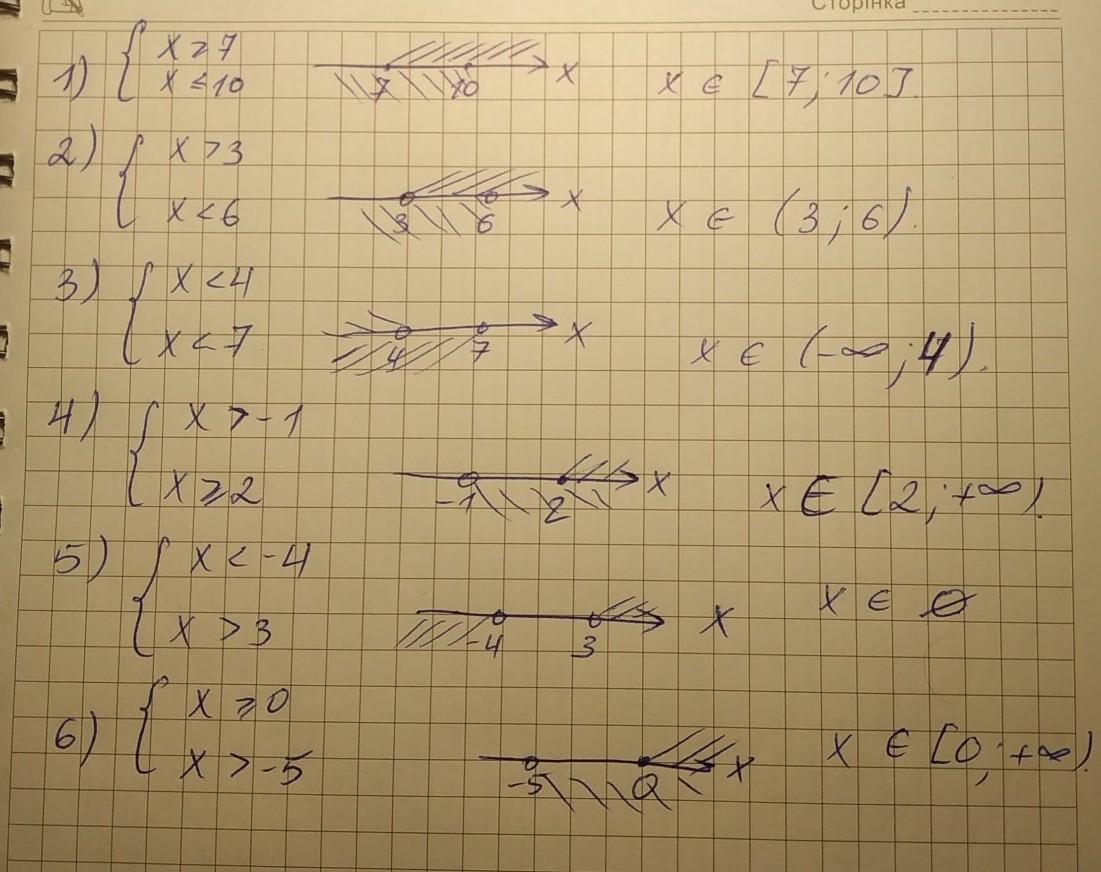 Сторінка
1) { x ⩾ 7
x ⩽ 10
7 10 x
x ∈ [7; 10].
2) { x > 3
x < 6
3 6 x
x ∈ (3; 6).
3) { x < 4
x < 7
4 7 x
x ∈ (-∞; 4).
4) { x > -1
x ⩾ 2
-1 2 x
x ∈ [2; +∞).
5) { x < -4
x > 3
-4 3 x
x ∈ ∅
6) { x ⩾ 0
x > -5
-5 0 x
x ∈ [0; +∞).